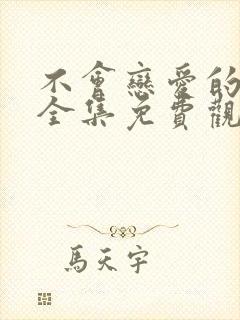 不會戀愛的
全集免費觀
馬天宇